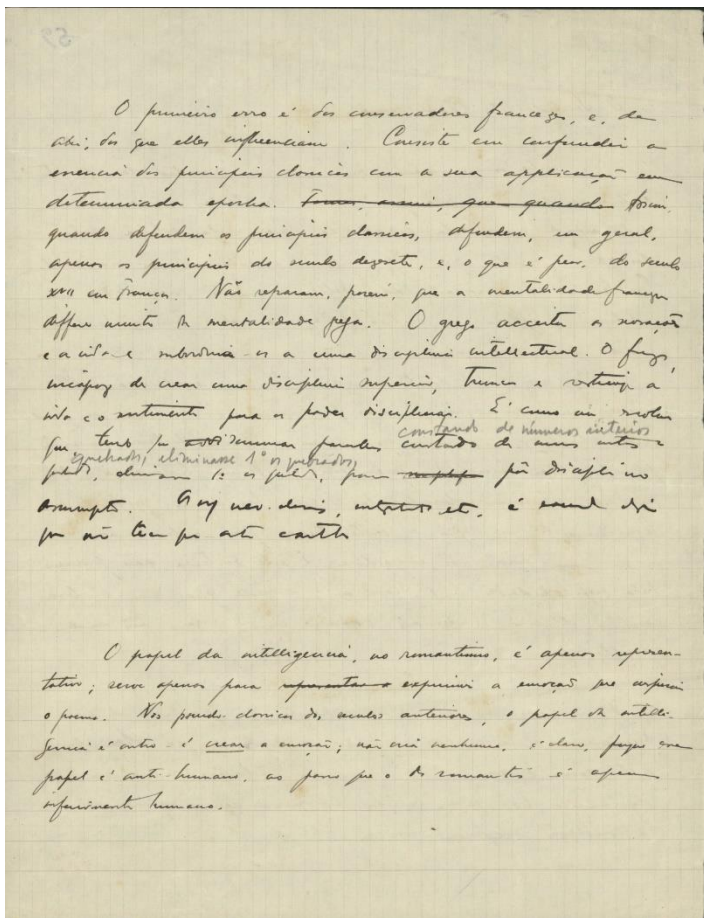 O primeiro erro é dos conservadores francezes, e, de
ahi, dos que elles influenciam. Consiste em confundir a
essencia dos principios classicos com a sua applicação em
determinada epocha. Assim,
quando defendem os principios classicos, defendem, em geral,
apenas os principios do seculo dezesete, e, o que é peor, do seculo
XVII em França. Não reparam, porém, que a mentalidade franceza
differe muito da mentalidade grega. O grego acceita as
e a vida e subordina-os a uma disciplina intellectual. O francez,
incapaz de crear uma disciplina superior, trunca e restringe a
vida e o sentimento para os poder disciplinar. É como um
que tendo que sommar parcelas constando de números inteiros
e quebrados, eliminasse 1º os quebrados, para pôr disciplina no
assumpto.
que não tem que
O papel da intelligencia, no romantismo, é apenas represen-
tativo; serve apenas para exprimir a emoção que inspira
o poema. Nos pseudo-classicos dos seculos anteriores, o papel da intelli-
gencia é outro - é crear a emoção; não cria nenhuma, é claro, porque esse
papel é anti-humano, ao passo que o dos romanticos é apenas
inferiormente humano.